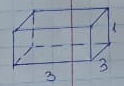 1
3 3